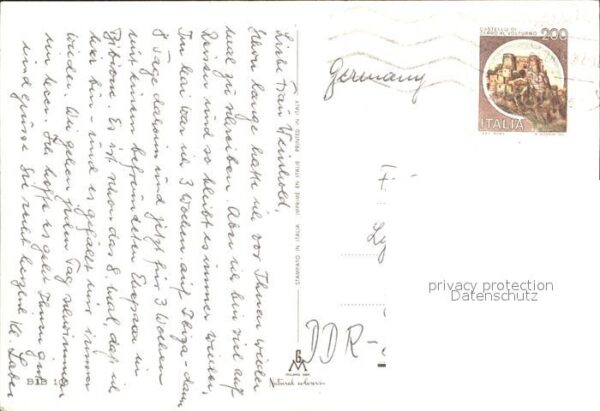 Liebe Frau Weinhold,
schon lange hatte ich vor Ihnen wieder
mal zu schreiben. Aber ich bin viel auf
Reisen und so bleibt es immer wieder.
Im Mai war ich 3 Wochen auf Ibiza - dann
8 Tage daheim und jetzt für 3 Wochen
mit einem befreundeten Ehepaar in
Bibione. Es ist schon das 8. mal, daß ich
hier bin - und es gefällt mir immer
wieder. Wir gehen jeden Tag schwimmen
im Meer. Ich hoffe es geht Ihnen gut
und grüsse Sie recht herzl.
Germany
DDR-
CASTELLO DI
CERRO AL VOLTURNO
200
ITALIA
STAMPATO IN ITALIA IMPRIMÉ EN ITALIE PRINTED IN ITALY
G
M
Natural colours
BIB
privacy protection
Datenschutz